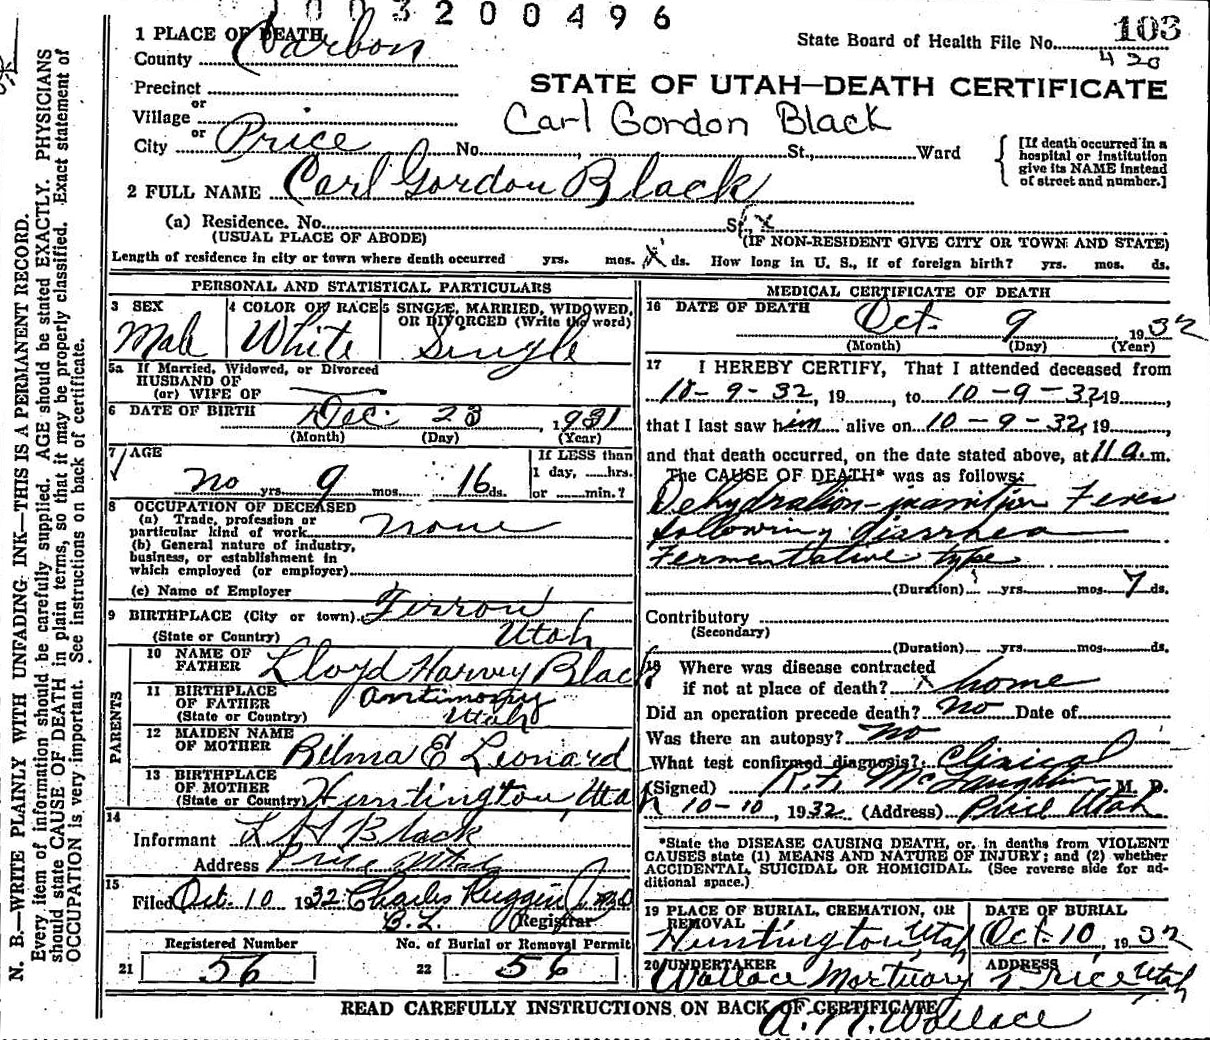 1003200496
103
1 PLACE OF DEATH
County Carbon
State Board of Health File No.
420
Precinct
or
Village
or
City Price No. St., Ward
STATE OF UTAH—DEATH CERTIFICATE
Carl Gordon Black
[If death occurred in a
hospital or institution
give its NAME instead
of street and number.]
2 FULL NAME Carl Gordon Black
(a) Residence. No. St. x
(USUAL PLACE OF ABODE) (IF NON-RESIDENT GIVE CITY OR TOWN AND STATE)
Length of residence in city or town where death occurred yrs. mos. x ds. How long in U. S., if of foreign birth? yrs. mos. ds.
PERSONAL AND STATISTICAL PARTICULARS
3 SEX 4 COLOR OR RACE 5 SINGLE, MARRIED, WIDOWED,
OR DIVORCED (Write the word)
Male White Single
5a If Married, Widowed, or Divorced
HUSBAND OF
(or) WIFE OF
6 DATE OF BIRTH Dec. 23, 1931
(Month) (Day) (Year)
7 AGE If LESS than
1 day, hrs.
no yrs. 9 mos. 16 ds. or min.?
8 OCCUPATION OF DECEASED
(a) Trade, profession or
particular kind of work none
(b) General nature of industry,
business, or establishment in
which employed (or employer)
(c) Name of Employer
9 BIRTHPLACE (City or town) Ferron
(State or Country) Utah
PARENTS
10 NAME OF
FATHER Lloyd Harvey Black
11 BIRTHPLACE
OF FATHER Antimony
(State or Country) Utah
12 MAIDEN NAME
OF MOTHER Bilma E Leonard
13 BIRTHPLACE
OF MOTHER
(State or Country) Huntington Uta
14
Informant L H Black
Address Price Utah
15
Filed Oct. 10 1932 Charles Ruggeri
Registrar
Registered Number No. of Burial or Removal Permit
21 56 22 56
MEDICAL CERTIFICATE OF DEATH
16 DATE OF DEATH Oct. 9 1932
(Month) (Day) (Year)
17 I HEREBY CERTIFY, That I attended deceased from
10-9-32, 19, to 10-9-32, 19,
that I last saw him alive on 10-9-32, 19,
and that death occurred, on the date stated above, at 11 a.m.
The CAUSE OF DEATH* was as follows:
Dehydration-inanition Fever
following diarrhea
Fermentative type
(Duration) yrs. mos. 7 ds.
Contributory
(Secondary)
(Duration) yrs. mos. ds.
18 Where was disease contracted
if not at place of death? x home
Did an operation precede death? no Date of
Was there an autopsy? no
What test confirmed diagnosis? Clinical
(Signed) R. F. McLaughlin M. D.
10-10, 1932 (Address) Price Utah
*State the DISEASE CAUSING DEATH, or, in deaths from VIOLENT
CAUSES state (1) MEANS AND NATURE OF INJURY; and (2) whether
ACCIDENTAL, SUICIDAL OR HOMICIDAL. (See reverse side for ad-
ditional space.)
19 PLACE OF BURIAL, CREMATION, OR
REMOVAL DATE OF BURIAL
Huntington, Utah Oct. 10, 1932
20 UNDERTAKER ADDRESS
Wallace Mortuary Price Utah
READ CAREFULLY INSTRUCTIONS ON BACK OF CERTIFICATE
A. N. Wallace
N. B.—WRITE PLAINLY WITH UNFADING INK—THIS IS A PERMANENT RECORD.
Every item of information should be carefully supplied. AGE should be stated EXACTLY. PHYSICIANS
should state CAUSE OF DEATH in plain terms, so that it may be properly classified. Exact statement of
OCCUPATION is very important. See instructions on back of certificate.